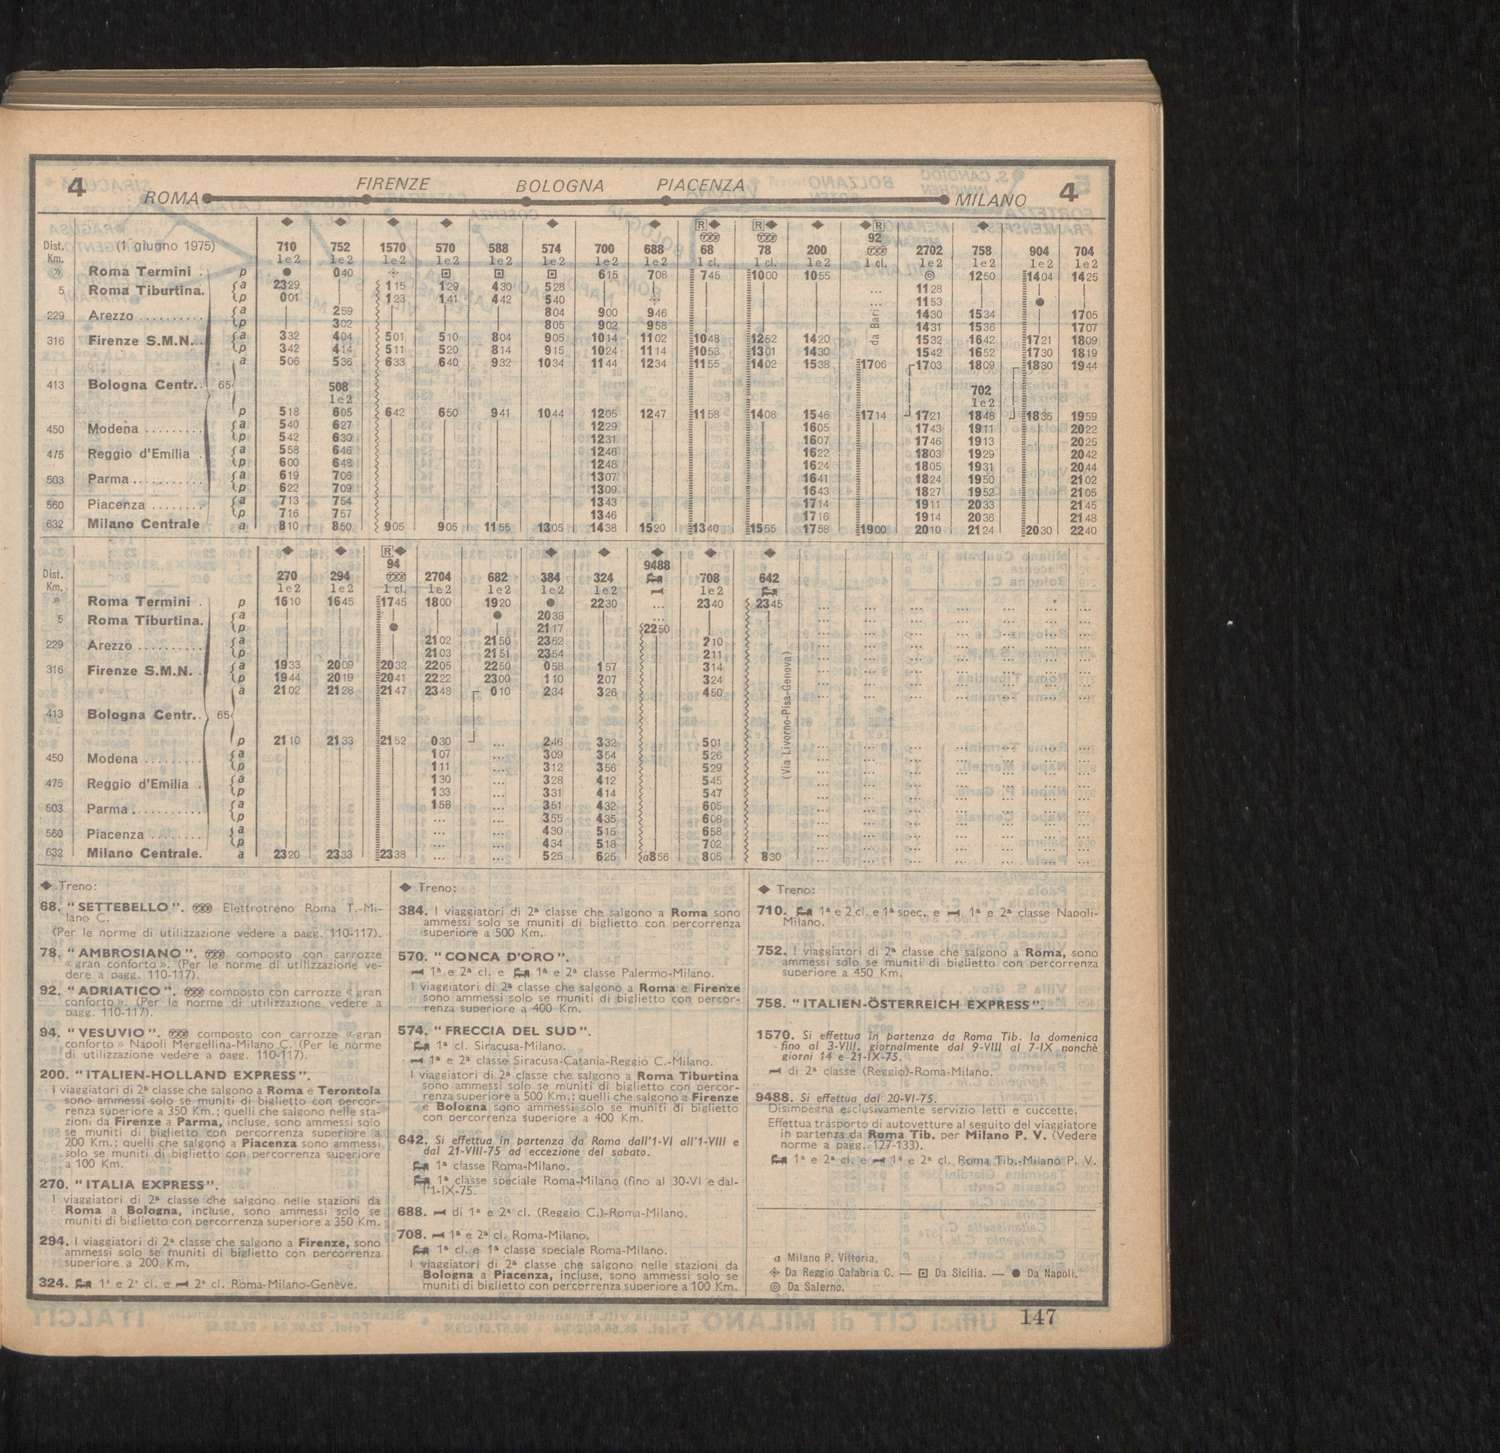 4 ROMA FIRENZE BOLOGNA PIACENZA MILANO 4
Dist. Km. (1 giugno 1975) 710 752 1570 570 588 574 700 688 68 78 200 92 2702 758 904 704
1e2 1e2 1e2 1e2 1e2 1e2 1e2 1e2 1 cl. 1 cl. 1e2 1 cl. 1e2 1e2 1e2 1e2
» Roma Termini . p ● 040 615 708 745 1000 1055 1250 1404 1425
5 Roma Tiburtina. a 2329 115 129 430 528 ... 1128
p 001 123 141 442 540 ... 1153 ●
229 Arezzo .......... a 259 804 900 946 da Bari 1430 1534 1705
p 302 805 902 958 1431 1536 1707
316 Firenze S.M.N. . a 332 404 501 510 804 905 1014 1102 1048 1252 1420 1532 1642 1721 1809
p 342 414 511 520 814 915 1024 1114 1053 1301 1430 1542 1652 1730 1819
a 506 536 633 640 932 1034 1144 1234 1155 1402 1538 1706 1703 1809 1830 1944
413 Bologna Centr. . 65 508 702
1e2 1e2
p 518 605 642 650 941 1044 1205 1247 1158 1408 1546 1714 1721 1846 1835 1959
450 Modena ......... a 540 627 1229 1605 1743 1911 2022
p 542 630 1231 1607 1746 1913 2025
475 Reggio d'Emilia . a 558 646 1246 1622 1803 1929 2042
p 600 648 1248 1624 1805 1931 2044
503 Parma ........... a 619 706 1307 1641 1824 1950 2102
p 622 709 1309 1643 1827 1952 2105
560 Piacenza ........ a 713 754 1343 1714 1911 2033 2145
p 716 757 1346 1716 1914 2036 2148
632 Milano Centrale a 810 850 905 905 1155 1305 1438 1520 1340 1555 1758 1900 2010 2124 2030 2240
Dist. Km. 270 294 94 2704 682 384 324 9488 708 642
1e2 1e2 1 cl. 1e2 1e2 1e2 1e2 1e2
» Roma Termini . p 1610 1645 1745 1800 1920 ● 2230 ... 2340 2345
5 Roma Tiburtina. a ● 2038 ...
p ● 2117 2250
229 Arezzo .......... a 2102 2150 2352 210
p 2103 2151 2354 211
316 Firenze S.M.N. . a 1933 2009 2032 2205 2250 058 157 314
p 1944 2019 2041 2222 2300 110 207 324
a 2102 2128 2147 2348 010 234 326 450
413 Bologna Centr. . 65 (Via Livorno-Pisa-Genova)
p 2110 2133 2152 030 ... 246 332 501
450 Modena ......... a 107 ... 309 354 526
p 111 ... 312 356 529
475 Reggio d'Emilia . a 130 ... 328 412 545
p 133 ... 331 414 547
503 Parma .......... a 158 ... 351 432 605
p ... ... 355 435 608
560 Piacenza ........ a ... ... 430 515 658
p ... ... 434 518 702
632 Milano Centrale. a 2320 2333 2338 ... ... 525 625 a856 805 830
◆ Treno:
68. "SETTEBELLO". Elettrotreno Roma T.-Mi-
lano C.
(Per le norme di utilizzazione vedere a pagg. 110-117).
78. "AMBROSIANO". composto con carrozze
«gran conforto». (Per le norme di utilizzazione ve-
dere a pagg. 110-117).
92. "ADRIATICO". composto con carrozze «gran
conforto». (Per le norme di utilizzazione vedere a
pagg. 110-117).
94. "VESUVIO". composto con carrozze «gran
conforto» Napoli Mergellina-Milano C. (Per le norme
di utilizzazione vedere a pagg. 110-117).
200. "ITALIEN-HOLLAND EXPRESS".
I viaggiatori di 2ª classe che salgono a Roma e Terontola
sono ammessi solo se muniti di biglietto con percor-
renza superiore a 350 Km.; quelli che salgono nelle sta-
zioni da Firenze a Parma, incluse, sono ammessi solo
se muniti di biglietto con percorrenza superiore a
200 Km.; quelli che salgono a Piacenza sono ammessi
solo se muniti di biglietto con percorrenza superiore
a 100 Km.
270. "ITALIA EXPRESS".
I viaggiatori di 2ª classe che salgono nelle stazioni da
Roma a Bologna, incluse, sono ammessi solo se
muniti di biglietto con percorrenza superiore a 350 Km.
294. I viaggiatori di 2ª classe che salgono a Firenze, sono
ammessi solo se muniti di biglietto con percorrenza
superiore a 200 Km.
324. 1ª e 2ª cl. e 2ª cl. Roma-Milano-Genève.
◆ Treno:
384. I viaggiatori di 2ª classe che salgono a Roma sono
ammessi solo se muniti di biglietto con percorrenza
superiore a 500 Km.
570. "CONCA D'ORO".
1ª e 2ª cl. e 1ª e 2ª classe Palermo-Milano.
I viaggiatori di 2ª classe che salgono a Roma e Firenze
sono ammessi solo se muniti di biglietto con percor-
renza superiore a 400 Km.
574. "FRECCIA DEL SUD".
1ª cl. Siracusa-Milano.
1ª e 2ª classe Siracusa-Catania-Reggio C.-Milano.
I viaggiatori di 2ª classe che salgono a Roma Tiburtina
sono ammessi solo se muniti di biglietto con percor-
renza superiore a 500 Km.; quelli che salgono a Firenze
e Bologna sono ammessi solo se muniti di biglietto
con percorrenza superiore a 400 Km.
642. Si effettua in partenza da Roma dall'1-VI all'1-VIII e
dal 21-VIII-75 ad eccezione del sabato.
1ª classe Roma-Milano.
1ª classe speciale Roma-Milano (fino al 30-VI e dal-
l'1-IX-75.
688. di 1ª e 2ª cl. (Reggio C.)-Roma-Milano.
708. 1ª e 2ª cl. Roma-Milano.
1ª cl. e 1ª classe speciale Roma-Milano.
I viaggiatori di 2ª classe che salgono nelle stazioni da
Bologna a Piacenza, incluse, sono ammessi solo se
muniti di biglietto con percorrenza superiore a 100 Km.
◆ Treno:
710. 1ª e 2 cl. e 1ª spec. e 1ª e 2ª classe Napoli-
Milano.
752. I viaggiatori di 2ª classe che salgono a Roma, sono
ammessi solo se muniti di biglietto con percorrenza
superiore a 450 Km.
758. "ITALIEN-ÖSTERREICH EXPRESS".
1570. Si effettua in partenza da Roma Tib. la domenica
fino al 3-VIII, giornalmente dal 9-VIII al 7-IX nonchè
giorni 14 e 21-IX-75.
di 2ª classe (Reggio)-Roma-Milano.
9488. Si effettua dal 20-VI-75.
Disimpegna esclusivamente servizio letti e cuccette.
Effettua trasporto di autovetture al seguito del viaggiatore
in partenza da Roma Tib. per Milano P. V. (Vedere
norme a pagg. 127-133).
1ª e 2ª cl. e 1ª e 2ª cl. Roma Tib.-Milano P. V.
a Milano P. Vittoria.
Da Reggio Calabria C. — Da Sicilia. — ● Da Napoli.
Da Salerno.
147